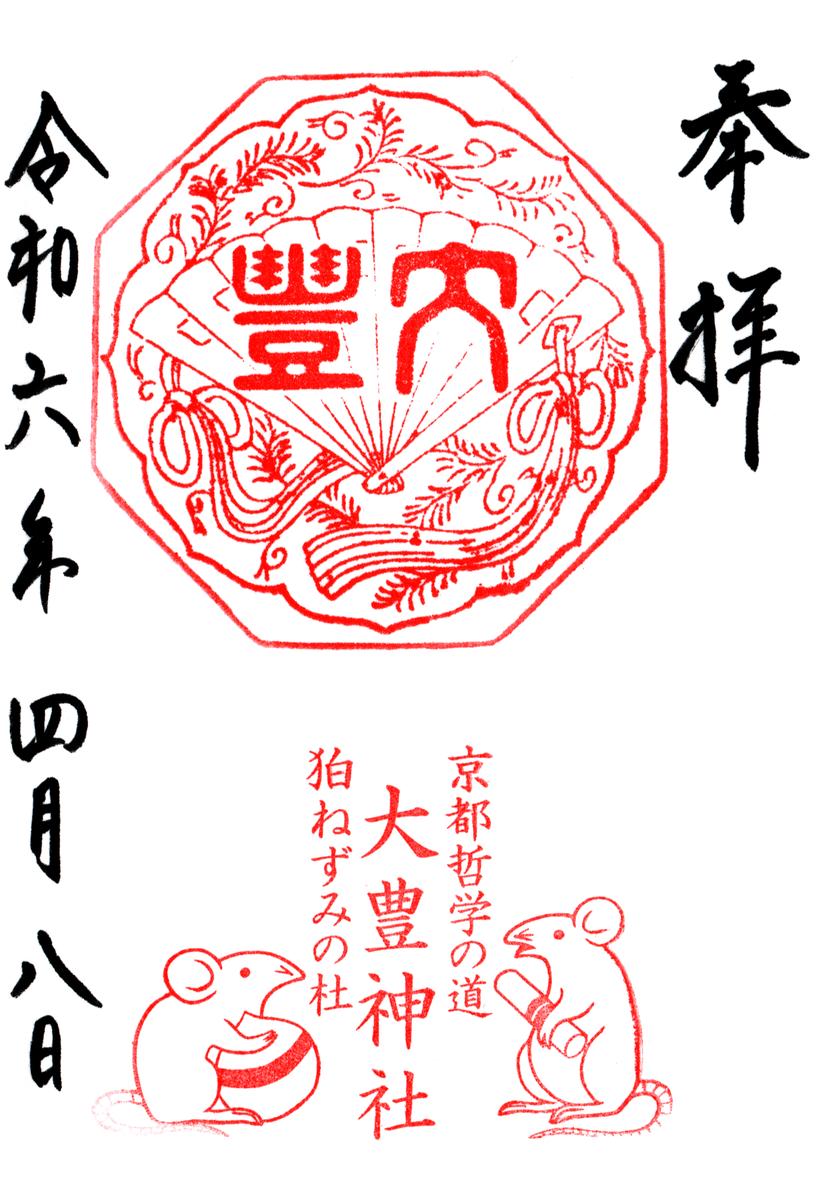 奉拝
大豐
京都哲学の道
大豊神社
狛ねずみの杜
令和六年 四月 八日